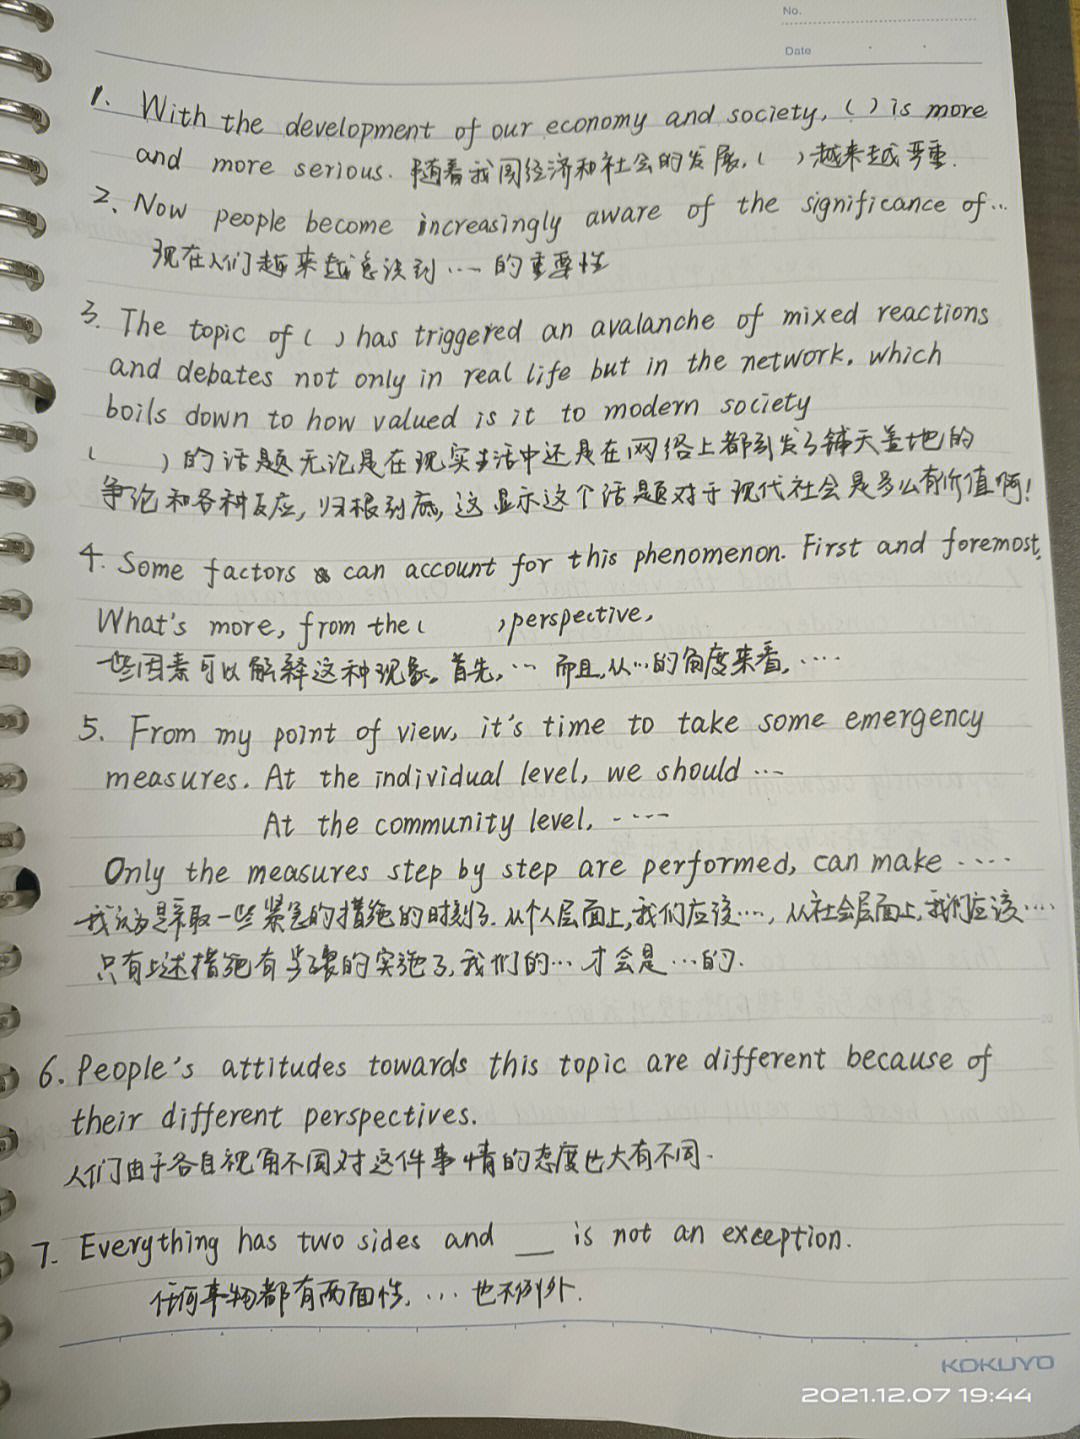 No.
Date
1. With the development of our economy and society, ( ) is more
and more serious. 随着我国经济和社会的发展, ( )越来越严重.
2、Now people become increasingly aware of the significance of...
现在人们越来越意识到...的重要性
3. The topic of ( ) has triggered an avalanche of mixed reactions
and debates not only in real life but in the network. which
boils down to how valued is it to modern society
( )的话题无论是在现实生活中还是在网络上都引发了铺天盖地的
争论和各种反应, 归根到底, 这显示这个话题对于现代社会是多么有价值啊!
4. Some factors can account for this phenomenon. First and foremost,
What's more, from the ( ) perspective,
一些因素可以解释这种现象。首先, ... 而且, 从...的角度来看, ....
5. From my point of view, it's time to take some emergency
measures. At the individual level, we should ...
At the community level, ....
Only the measures step by step are performed, can make ....
我认为是采取一些紧急的措施的时刻了. 从个人层面上, 我们应该...., 从社会层面上, 我们应该....
只有上述措施有步骤的实施了, 我们的...才会是...的.
6. People's attitudes towards this topic are different because of
their different perspectives.
人们由于各自视角不同对这件事情的态度也大有不同.
7. Everything has two sides and __ is not an exception.
任何事物都有两面性, ... 也不例外.
KOKUYO
2021.12.07 19:44